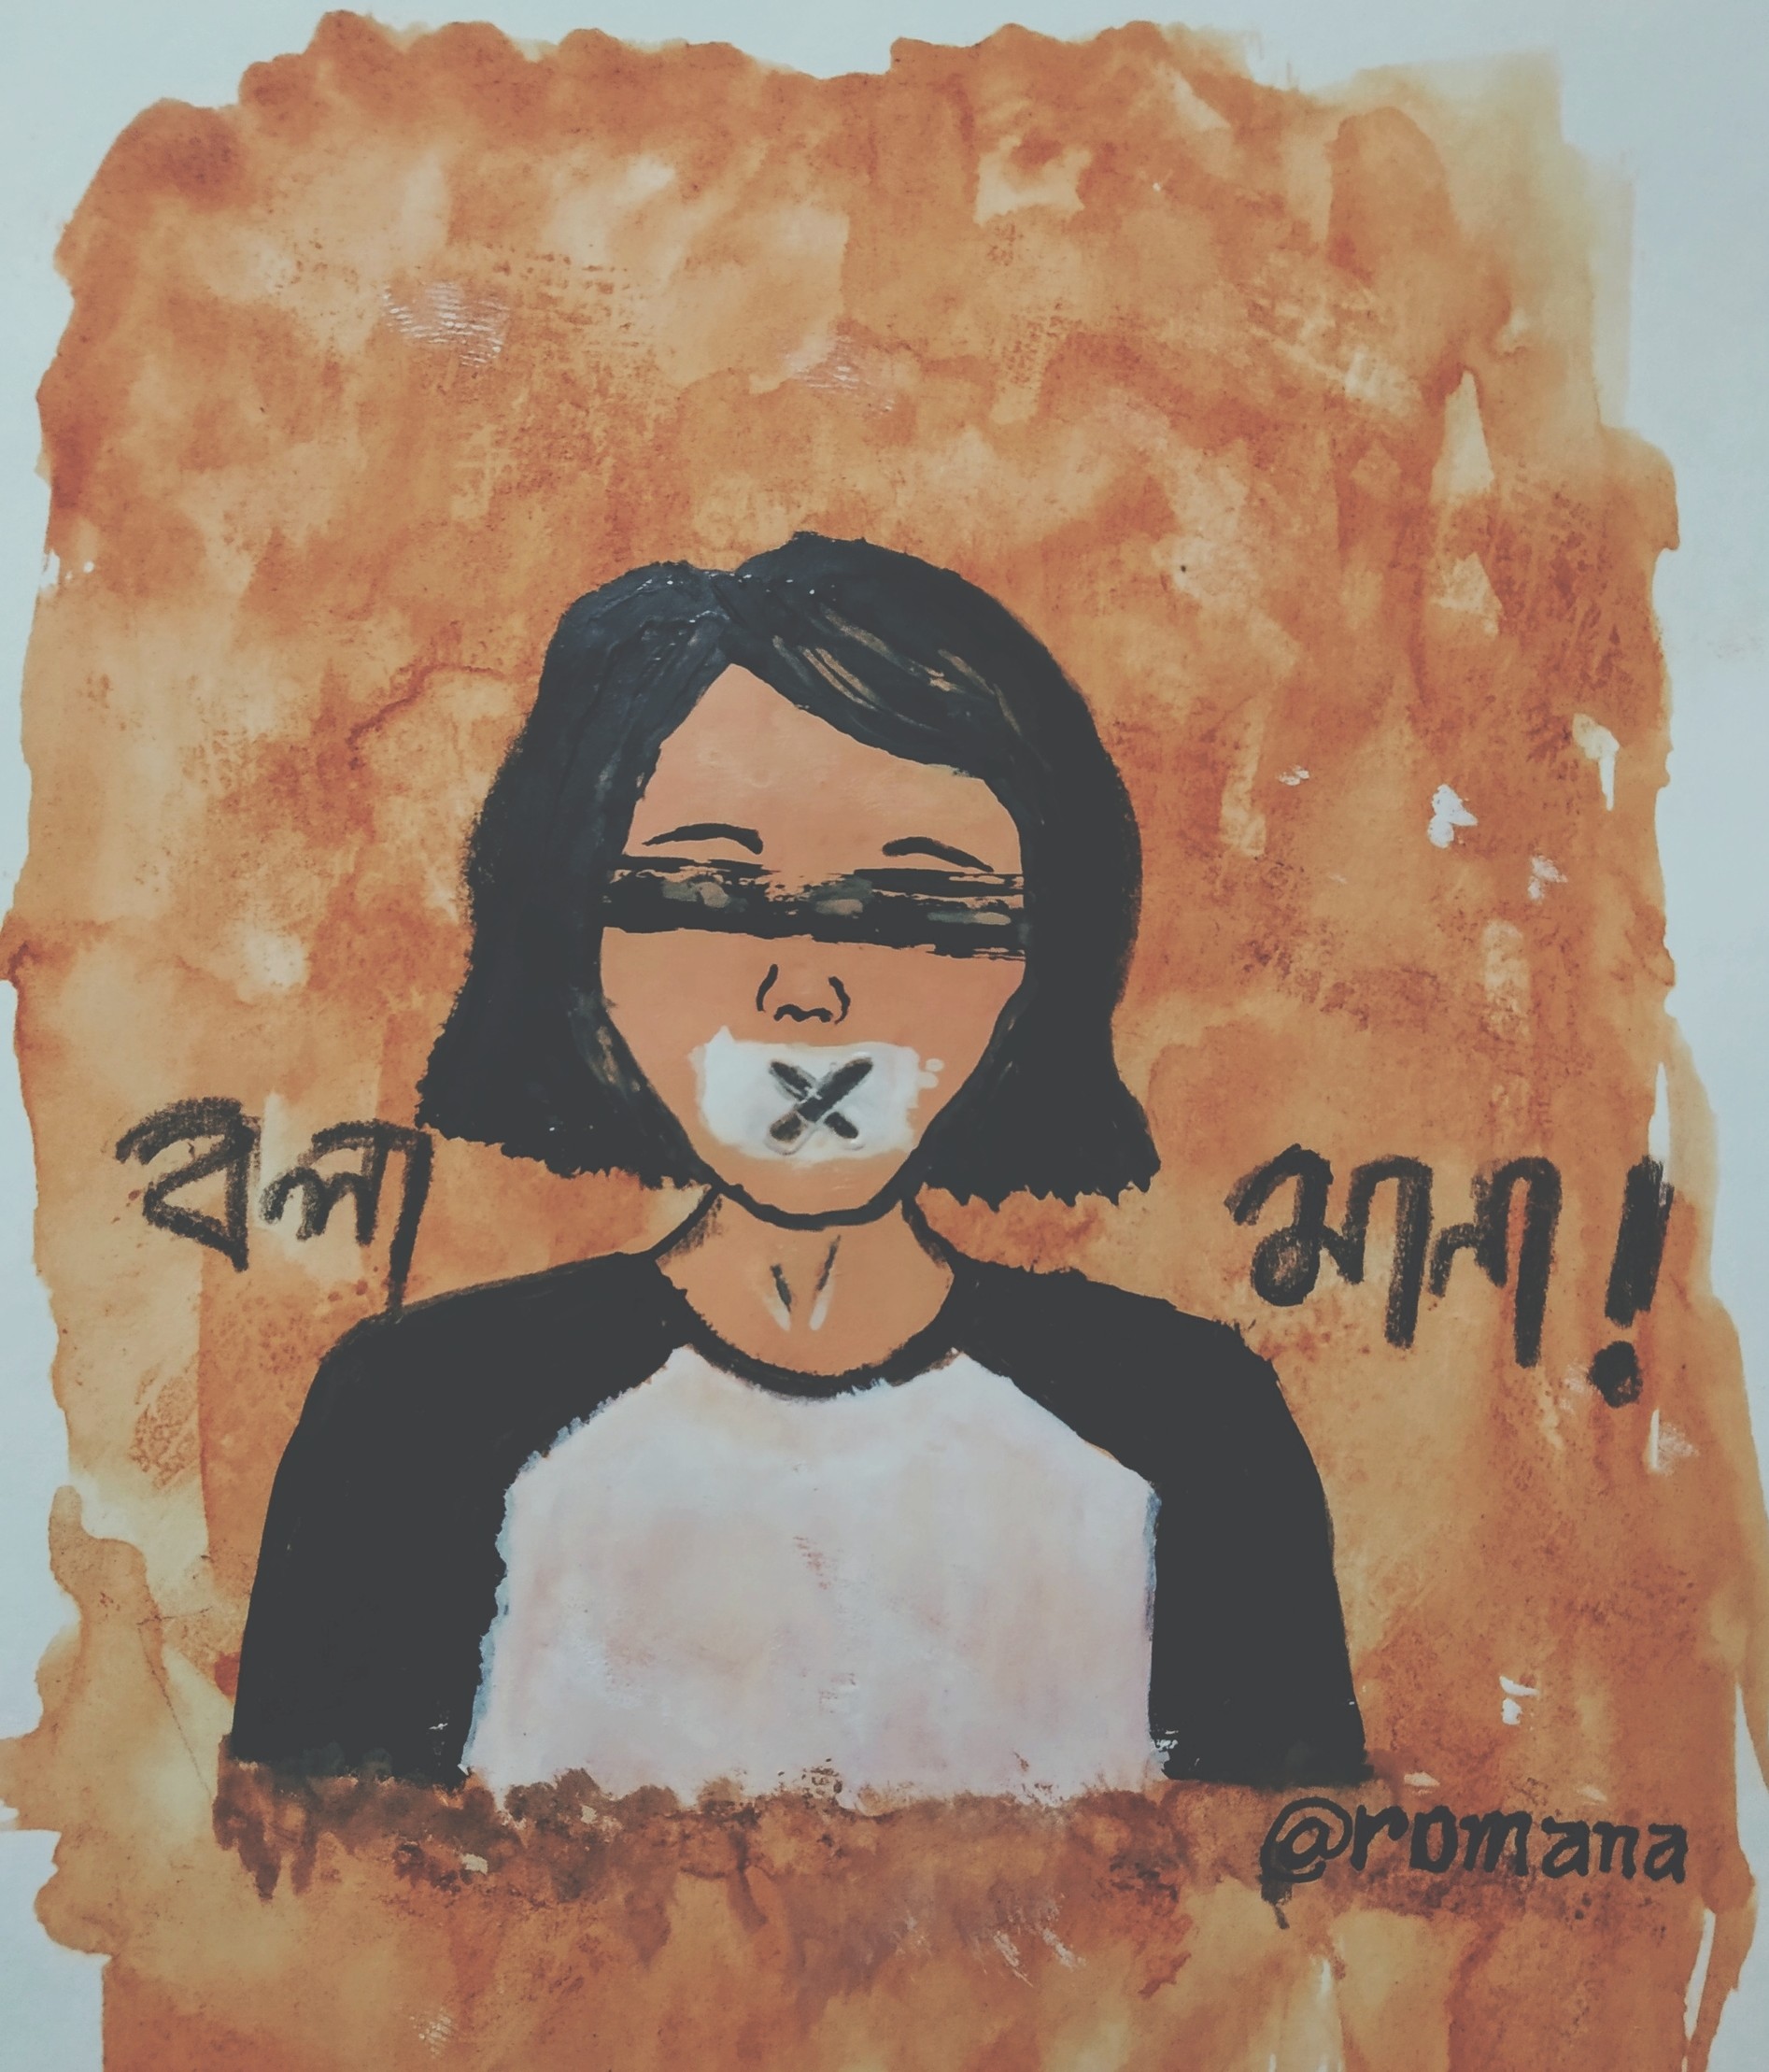 বলা মানা!
@romana